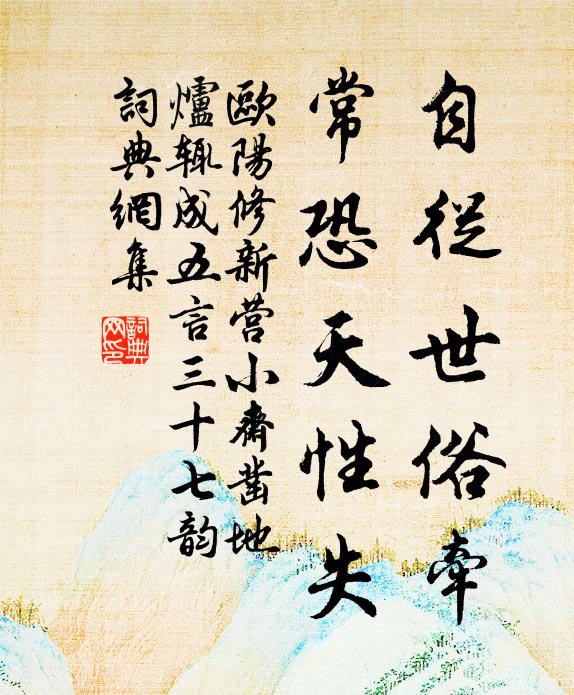 自從世俗牽
常恐天性失
歐陽修新营小齋凿地
爐辄成五言三十七韵
詞典網集
詞典網印